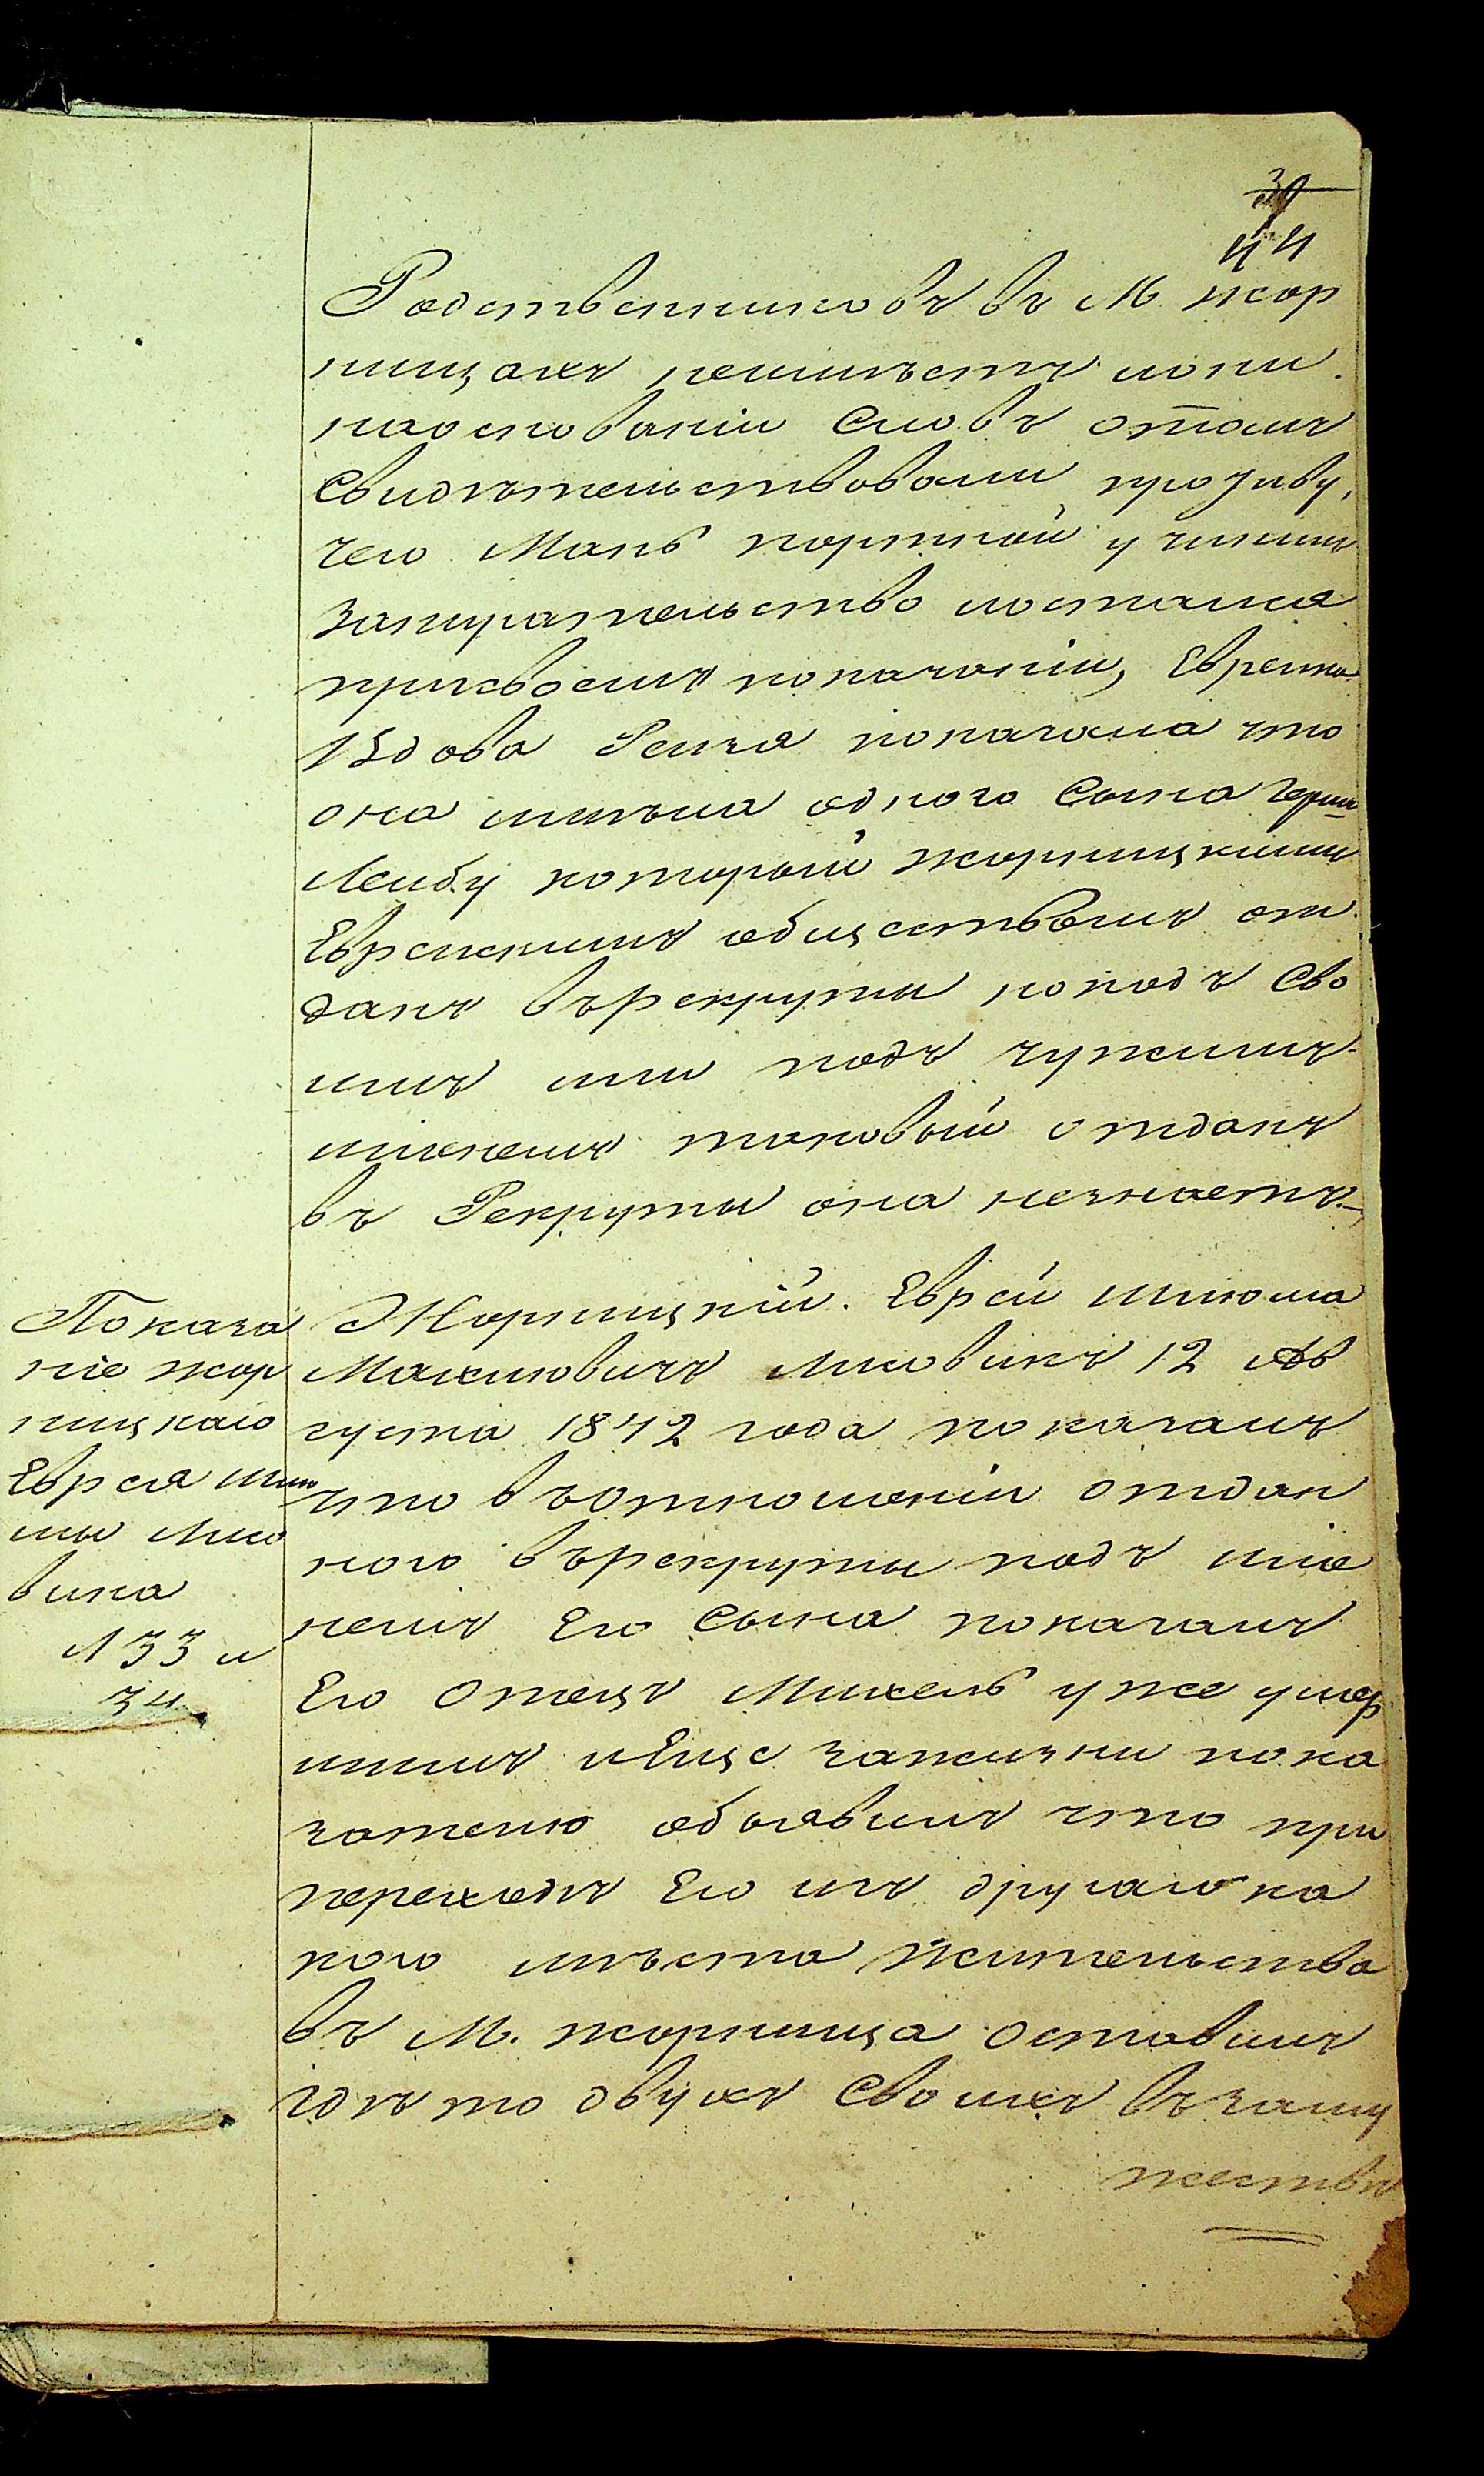 44
Родственниковъ въ М. жор
ницахъ неимѣетъ иони
наоснованіи Словъ отомъ
Свидѣтельствовали
чего Мань портной учинилъ
запирательство иостался
присвоемъ показаніи, Еврейка
Вдова Рейзя показала что
она имѣла одного Сына Герш
Лейбу который жорницкимъ
Еврейскимъ обществомъ от
данъ върекруты ноподъ Сво
имъ или подъ чужимъ
имянемъ таковый отданъ
въ Рекруты она незнаетъ.
Показа
ніе жор
ницкаго
Еврея Шлио
мы
вика
л 33 и
34.
Жорницкій. Еврей Шлиома
Махиловичъ 12 Ав
густа 1842 года показалъ
что въотношеніи отдан
ного върекруты подъ имя
немъ Его Сына показалъ
Его Отецъ Михель уже умер
шимъ иЕще зажизни пока
зателю объявилъ что при
переходѣ Его изъ другаго ка
кого мѣста жительства
въ М. жорница оставилъ
гдѣ то двухъ Своихъ въ заму
жествѣ